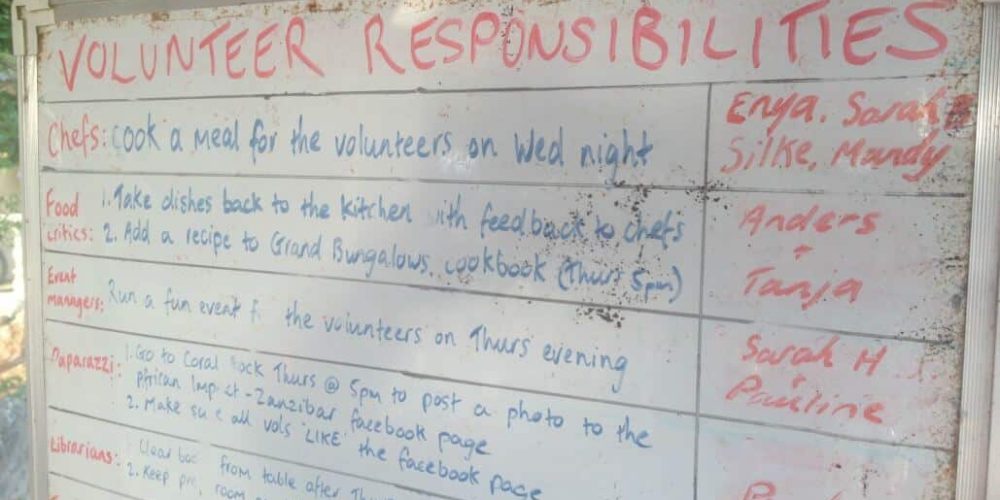 VOLUNTEER RESPONSIBILITIES
Chefs: Cook a meal for the volunteers on Wed night
Enya, Sarah
Silke, Mandy
Food critics:
1. Take dishes back to the kitchen ith feedback to chefs
2. Add a recipe to Grand Bungalows cookbook (Thurs 5pm)
Anders
+
Tanja
Event managers:
Run a fun event f the volunteers on Thurs evening
Sarah H
+
Pauline
Paparazzi:
1. Go to Coral ock Thurs @ 5pm to post a photo to the
African Imp ct - Zanzibar facebook page
2. Make su e all vols 'LIKE' the facebook page
Librarians:
Clear from table after
2. Keep room